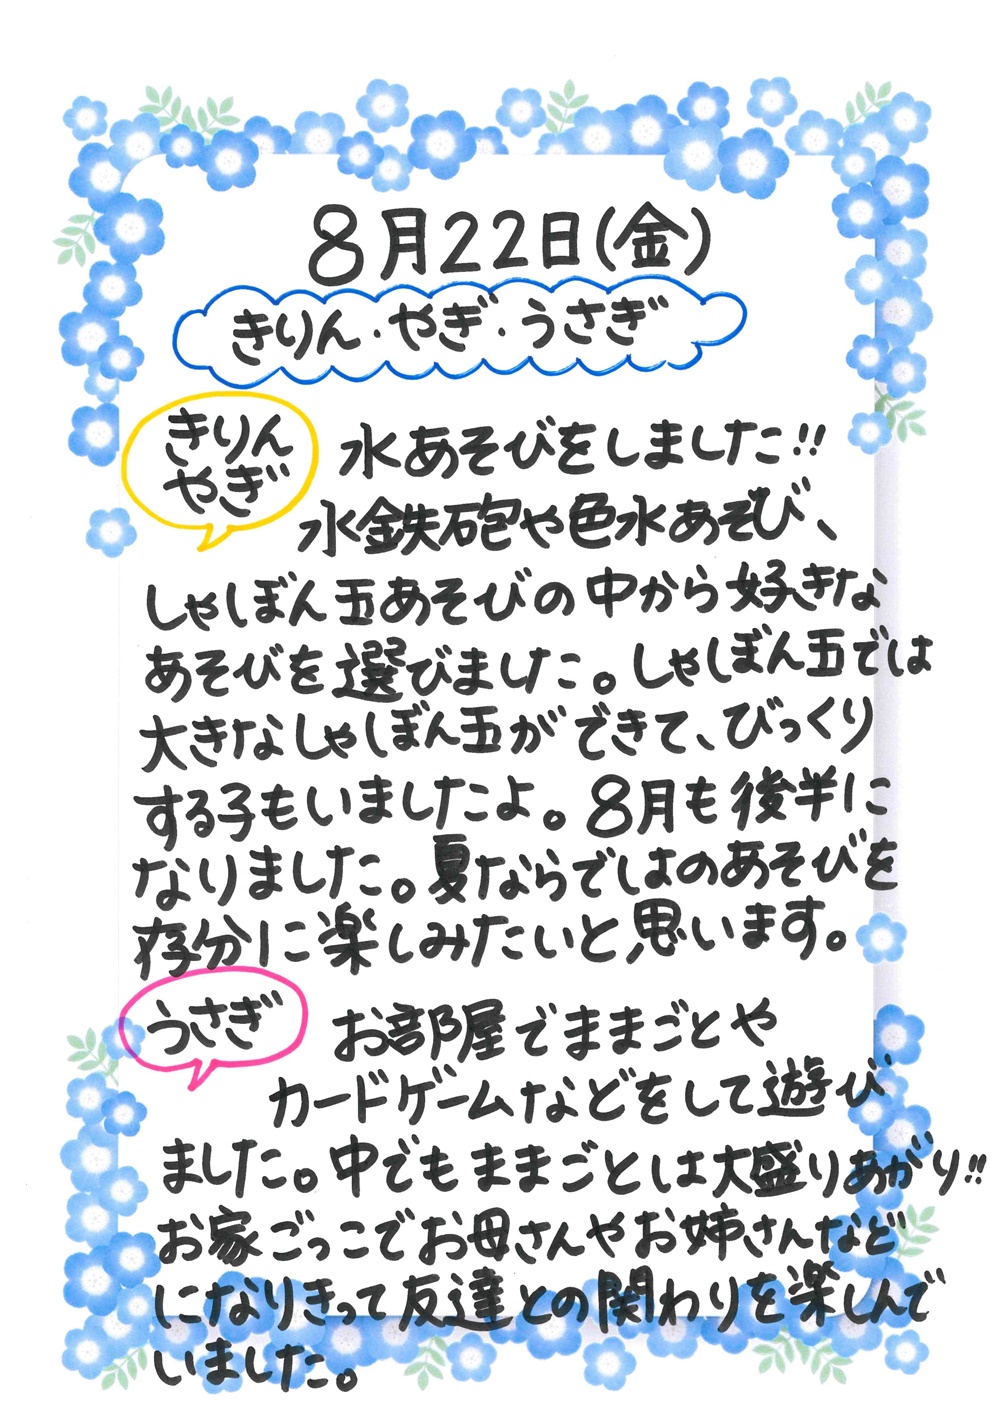 8月22日(金)
きりん・やぎ・うさぎ
きりん
やぎ
水あそびをしました!!
水鉄砲や色水あそび、
しゃぼん玉あそびの中から好きな
あそびを選びました。しゃぼん玉では
大きなしゃぼん玉ができて、びっくり
する子もいましたよ。8月も後半に
なりました。夏ならではのあそびを
存分に楽しみたいと思います。
うさぎ
お部屋でままごとや
カードゲームなどをして遊び
ました。中でもままごとは大盛りあがり!!
お家ごっこでお母さんやお姉さんなど
になりきって友達との関わりを楽しんで
いました。